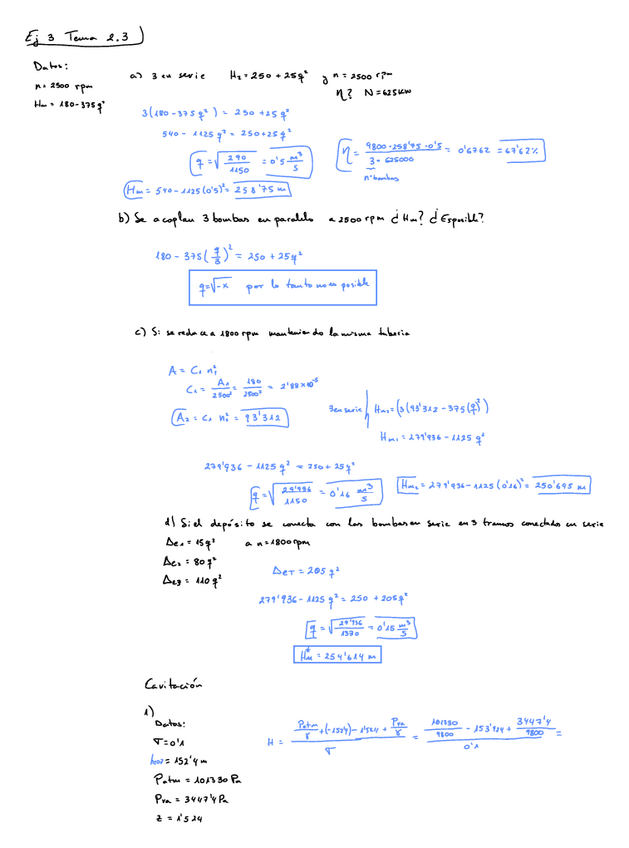 Ej 3 Tema 2.3
Datos:
n = 2500 rpm
Hm = 180 - 375q²
a) 3 en serie Hz = 250 + 25q² y n = 2500 rpm
η? N = 625 kW
3(180 - 375q²) = 250 + 25q²
540 - 1125q² = 250 + 25q²
q = √(290/1150) = 0'5 m³/s
η = 9800·258'75·0'5 / 3·625000 = 0'6762 = 67'62%
nº bombas
Hm = 540 - 1125(0'5)² = 258'75 m
b) Se acoplan 3 bombas en paralelo a 2500 rpm ¿Hm? ¿Es posible?
180 - 375(q/3)² = 250 + 25q²
q = √-x por lo tanto no es posible
c) Si se reduce a 1800 rpm manteniendo la misma tubería
A = C₁ n₁²
C₁ = A₁/2500² = 180/2500² = 2'88×10⁻⁵
A₂ = C₁ n₁² = 93'312
3 en serie Hm₁ = (3(93'312 - 375(q)²)
Hm₁ = 279'936 - 1125q²
279'936 - 1125q² = 250 + 25q²
q = √(29'936/1150) = 0'16 m³/s
Hm₂ = 279'936 - 1125(0'16)² = 250'695 m
d) Si el depósito se conecta con las bombas en serie en 3 tramos conectado en serie
Δe₁ = 15q² a n = 1800 rpm
Δe₂ = 80q²
Δe₃ = 110q²
ΔeT = 205q²
279'936 - 1125q² = 250 + 205q²
q = √(29'936/1330) = 0'15 m³/s
Hm = 254'624 m
Cavitación
1)
Datos:
σ = 0'1
= 152'4 m
Patm = 101330 Pa
Pva = 3447'4 Pa
z = 1'524
H = (Patm/γ + (-1524) - 1'524 + Pva/γ) / σ = (101330/9800 - 153'924 + 3447'4/9800) / 0'1 =